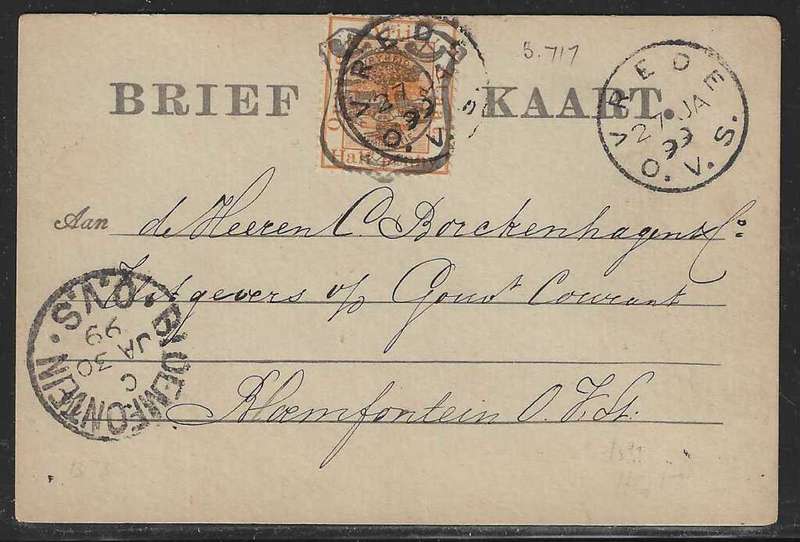 5.717
BRIEF KAART.
Half Penny
VREDE
27 JA
99
O.V.S.
VREDE
27 JA
99
O.V.S.
Aan de Heeren C. Borckenhagen & Co.
Uitgevers op Gouvt Courant
Bloemfontein O.V.St.
BLOEMFONTEIN · O.V.S.
C
JA 30
99